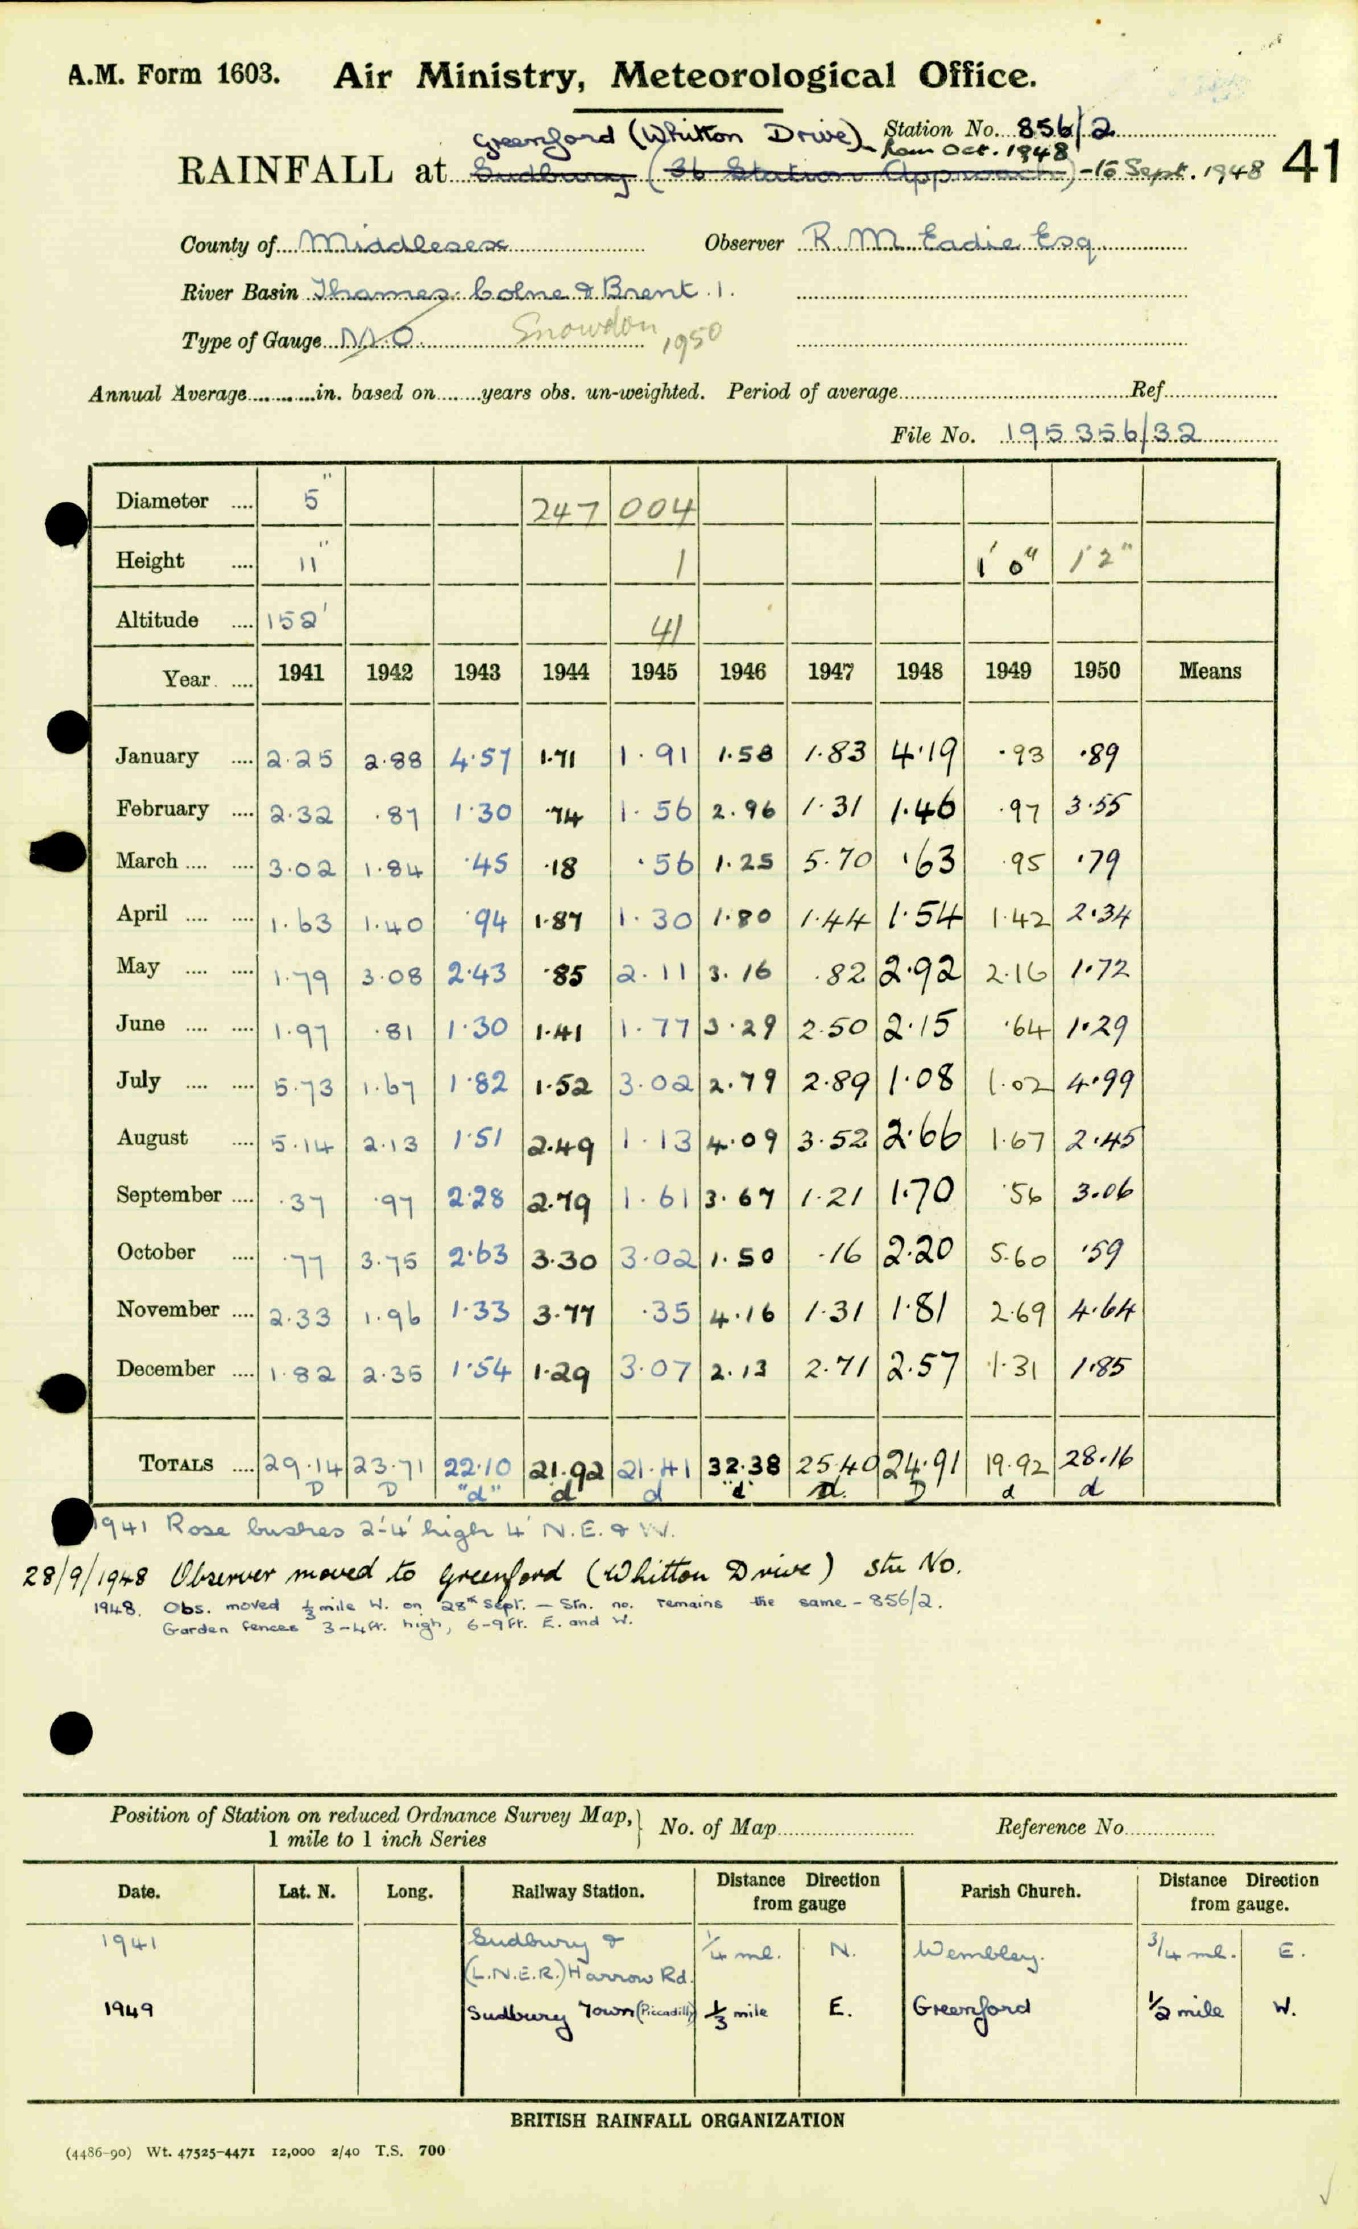 A.M. Form 1603. Air Ministry, Meteorological Office.
Station No. 856/2
Greenford (Whitton Drive) from Oct. 1948
RAINFALL at Sudbury (36 Station Approach) -15 Sept. 1948 41
County of Middlesex Observer R M Eadie Esq
River Basin Thames. Colne & Brent. 1.
Type of Gauge M O Snowdon 1950
Annual Average in. based on years obs. un-weighted. Period of average Ref
File No. 195356/32
Diameter 5" 247 004
Height 11" 1 1' 0" 1' 2"
Altitude 152' 41
Year 1941 1942 1943 1944 1945 1946 1947 1948 1949 1950 Means
January 2.25 2.88 4.57 1.71 1.91 1.58 1.83 4.19 .93 .89
February 2.32 .87 1.30 .74 1.56 2.96 1.31 1.46 .97 3.55
March 3.02 1.84 .45 .18 .56 1.25 5.70 .63 .95 .79
April 1.63 1.40 .94 1.87 1.30 1.80 1.44 1.54 1.42 2.34
May 1.79 3.08 2.43 .85 2.11 3.16 .82 2.92 2.16 1.72
June 1.97 .81 1.30 1.41 1.77 3.29 2.50 2.15 .64 1.29
July 5.73 1.67 1.82 1.52 3.02 2.79 2.89 1.08 1.02 4.99
August 5.14 2.13 1.51 2.49 1.13 4.09 3.52 2.66 1.67 2.45
September .37 .97 2.28 2.79 1.61 3.67 1.21 1.70 .56 3.06
October .77 3.75 2.63 3.30 3.02 1.50 .16 2.20 5.60 .59
November 2.33 1.96 1.33 3.77 .35 4.16 1.31 1.81 2.69 4.64
December 1.82 2.35 1.54 1.29 3.07 2.13 2.71 2.57 1.31 1.85
TOTALS 29.14 23.71 22.10 21.92 21.41 32.38 25.40 24.91 19.92 28.16
D D "d" d d "d" D. D d d
1941 Rose bushes 2'-4' high 4' N.E. & W.
28/9/1948 Observer moved to Greenford (Whitton Drive) Stn No.
1948. Obs. moved 1/3 mile W. on 28th Sept. – Stn. no. remains the same – 856/2.
Garden fences 3–4ft. high, 6–9ft. E. and W.
Position of Station on reduced Ordnance Survey Map, 1 mile to 1 inch Series No. of Map Reference No
Date. Lat. N. Long. Railway Station. Distance Direction from gauge Parish Church. Distance Direction from gauge.
1941 Sudbury & (L.N.E.R.) Harrow Rd. 1/4 ml. N. Wembley. 3/4 ml. E.
1949 Sudbury Town (Piccadilly) 1/3 mile E. Greenford 1/2 mile W.
BRITISH RAINFALL ORGANIZATION
(4486-90) Wt. 47525-4471 12,000 2/40 T.S. 700